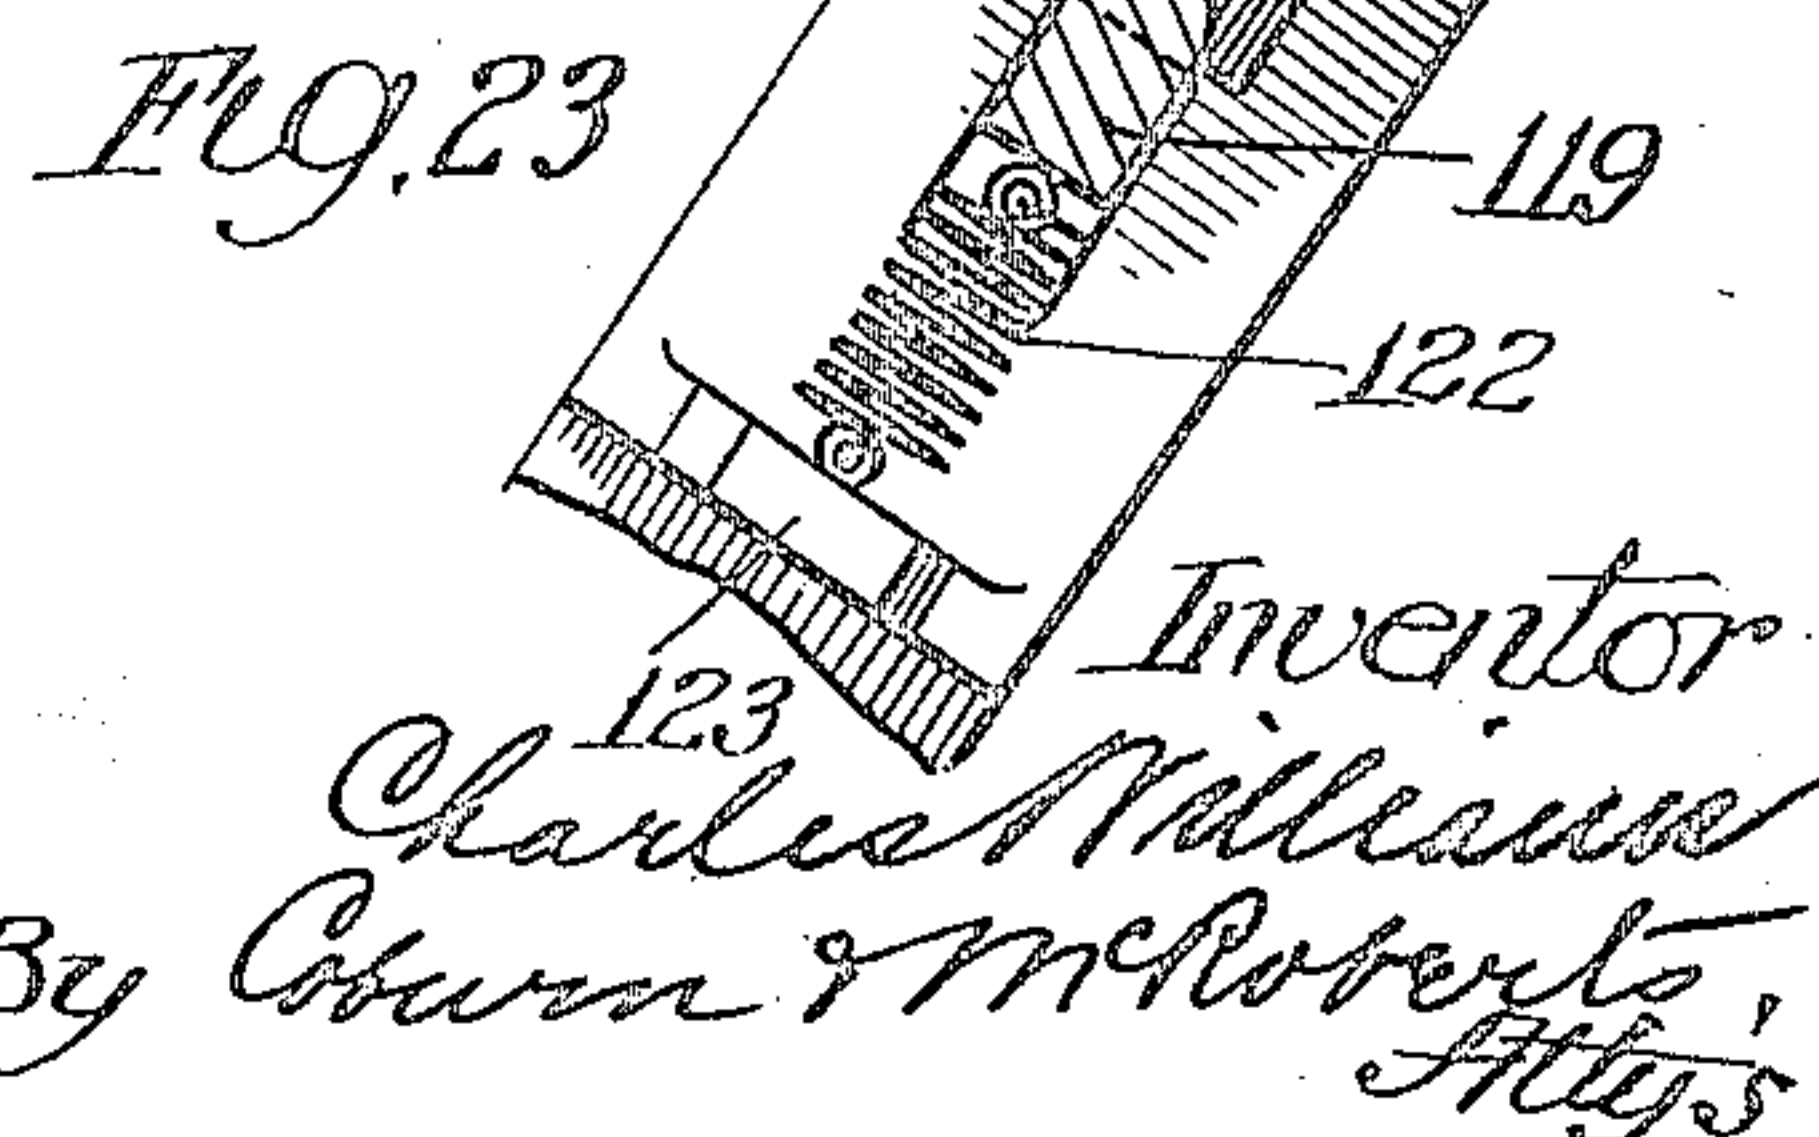 Fig. 23
119
122
123
Inventor
Charles William
By Coburn & McRoberts,
Attys